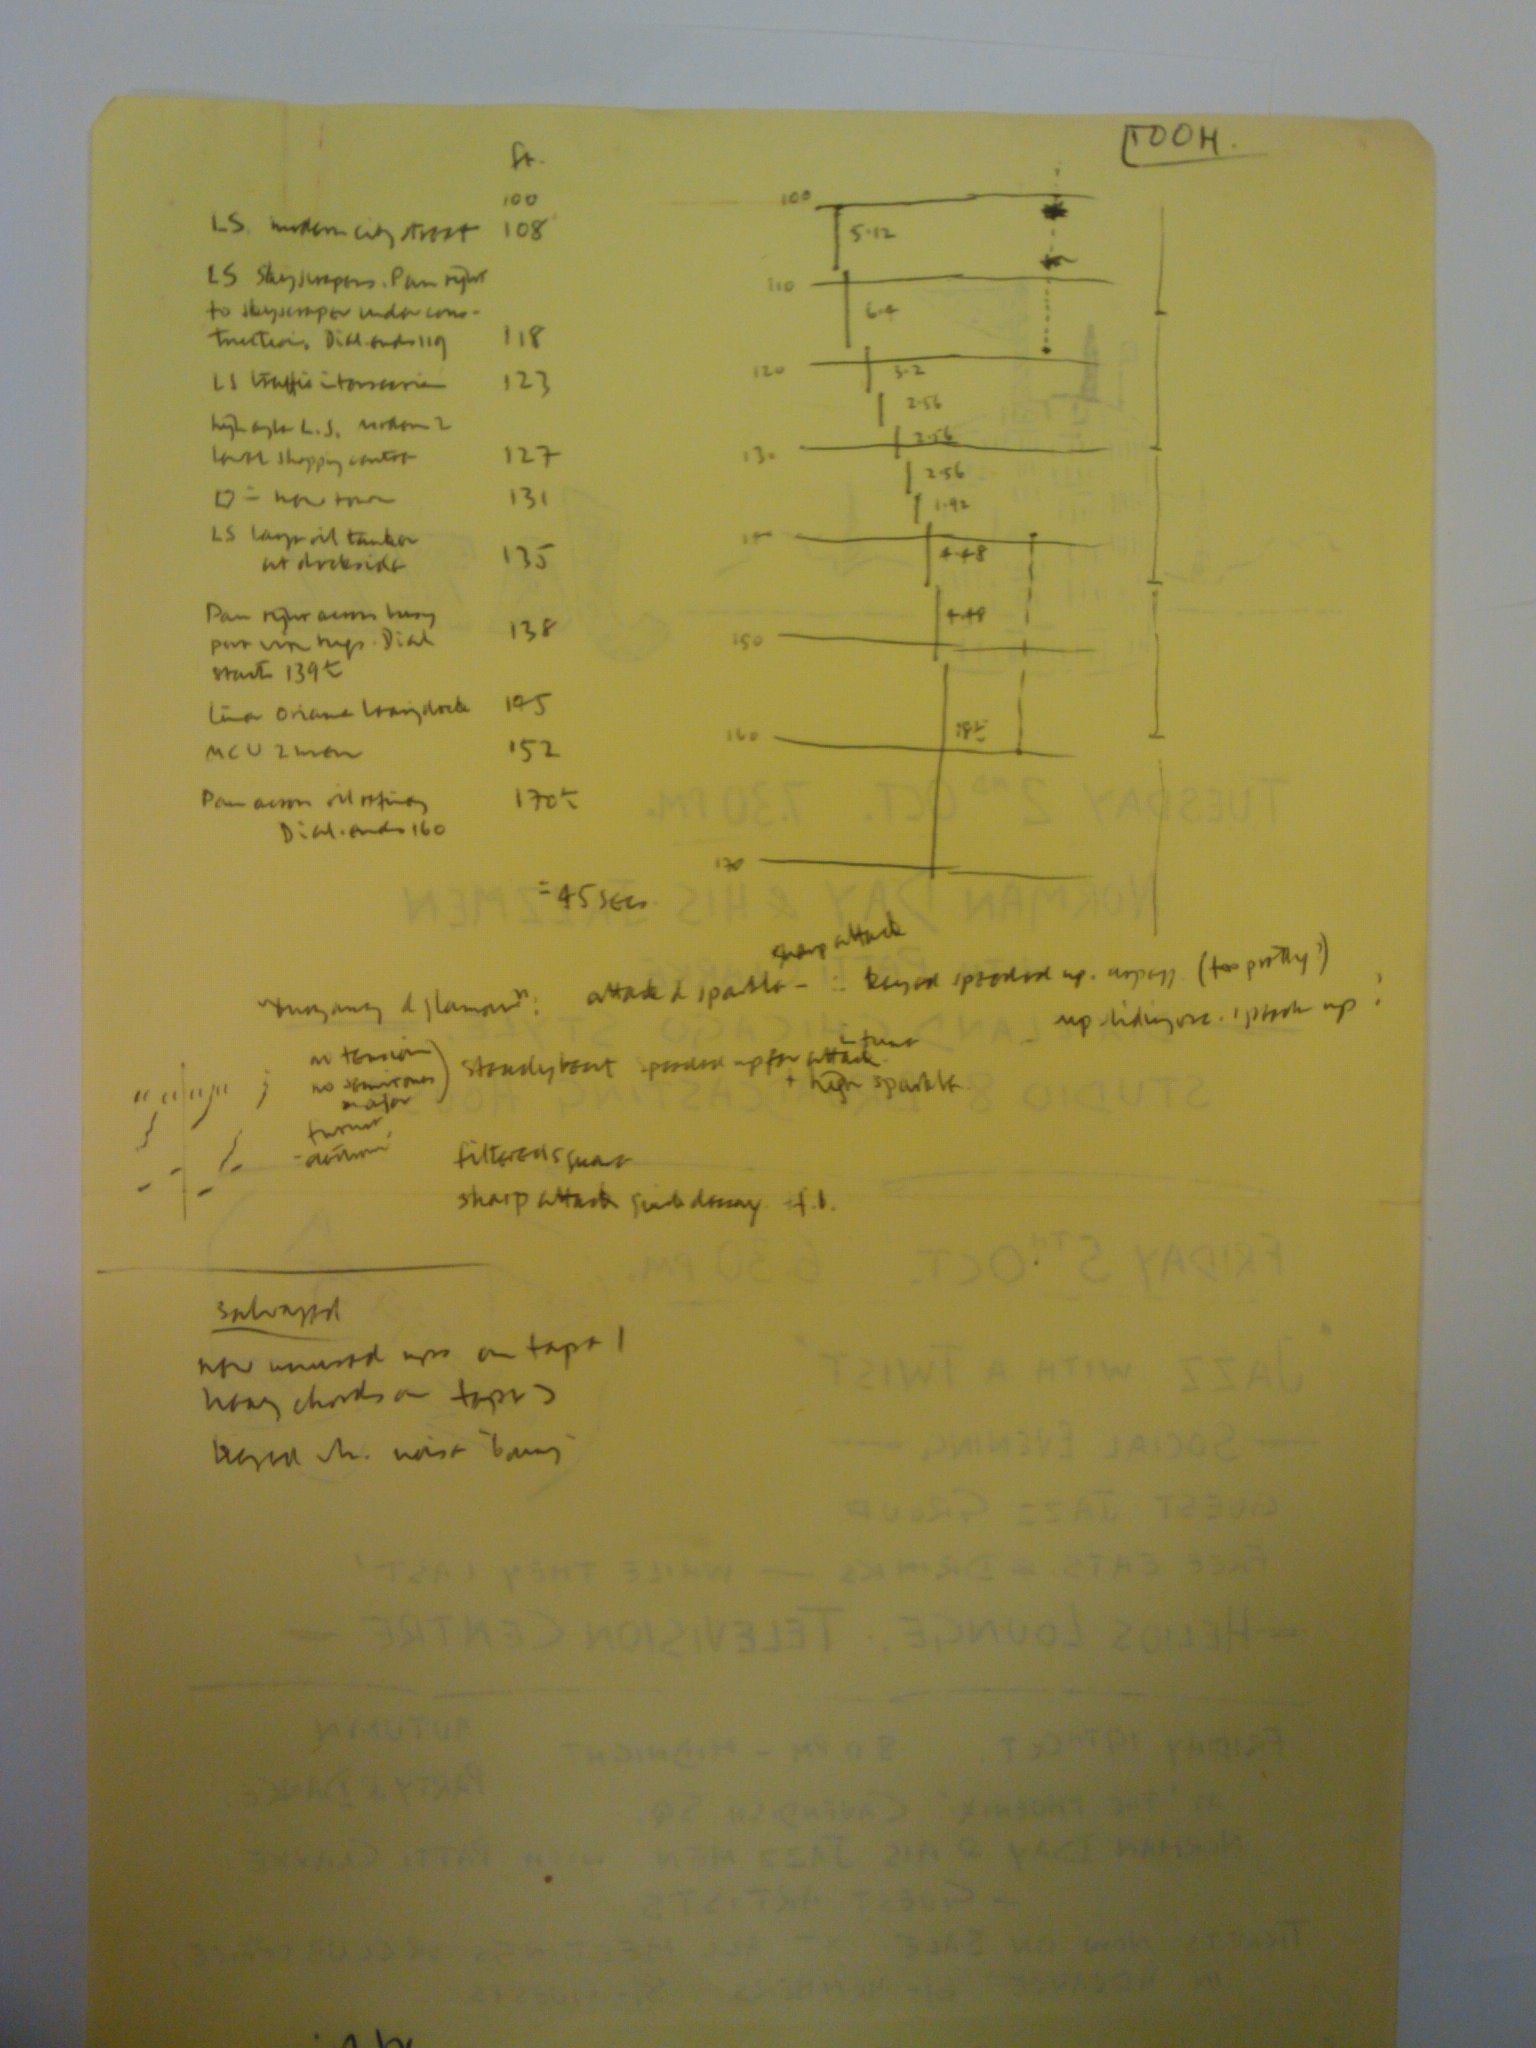 TOOH.
ft.
100
LS. modern city street 108
LS Skyscrapers. Pan right
to skyscraper under cons-
truction. Dial. ends 119 118
LS traffic 123
high angle L.S. modern 2
level shopping centre 127
= new town 131
LS large oil tanker
at dockside 135
Pan right across busy
port with tugs. Dial
starts 139½ 138
Liner Oriana leaving dock 145
MCU 2 men 152
Pan across oil refinery 170½
Dial. ends 160
= 45 SECS.
100
5.12
110
6.4
120
3.2
2.56
2.56
130
2.56
1.92
140
4.48
4.48
150
160
18½
170
sharp attack
"buoyancy & glamour": attack & sparkle - keyed speeded up. arpegg. (too pretty?)
up. speed up?
no tension
no semitones
major
steady beat speeded up for attack
& tune
+ high sparkle.
filtered square
sharp attack quick decay + f.b.
salvaged
new unused ups on tape 1
heavy chords on tape 3
keyed wh. noise "boing"
TUESDAY 2ND OCT. 7.30 PM.
NORMAN DAY & HIS JAZZMEN
CHICAGO STYLE
STUDIO 8 BROADCASTING HOUSE
FRIDAY 5TH OCT. 6.30 PM.
"JAZZ WITH A TWIST"
— SOCIAL EVENING —
GUEST JAZZ GROUP
FREE EATS & DRINKS — WHILE THEY LAST!
— HELIOS LOUNGE, TELEVISION CENTRE —
FRIDAY 19TH OCT. 8.0 PM - MIDNIGHT
AUTUMN
PARTY & DANCE.
AT "THE PHOENIX" CAVENDISH SQ.
NORMAN DAY & HIS JAZZ MEN WITH PATTI CLARKE
— GUEST ARTISTS
TICKETS NOW ON SALE AT ALL MEETINGS